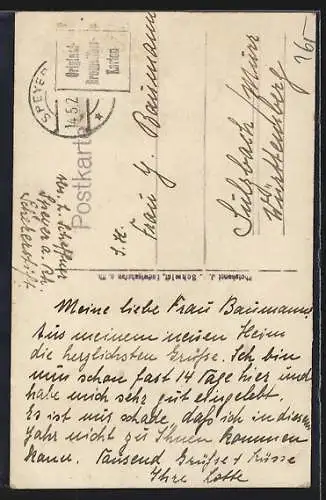 SPEYER
14.5.2
Original-
Bromsilber-
Karten
Postkarte
S. H.
Frau J. Baumann
Sulzbach/Murr
Württemberg
Speyer a. Rh.
Photograph J. Schmidt, Ludwigshafen a. Rh.
Meine liebe Frau Baumann,
Aus meinem neuen Heim
die herzlichsten Grüße. Ich bin
nun schon fast 14 Tage hier und
habe mich sehr gut eingelebt.
Es ist nur schade daß ich in diesem
Jahr nicht zu Ihnen kommen
kann. Tausend Grüße + Küsse
Ihre Lotte